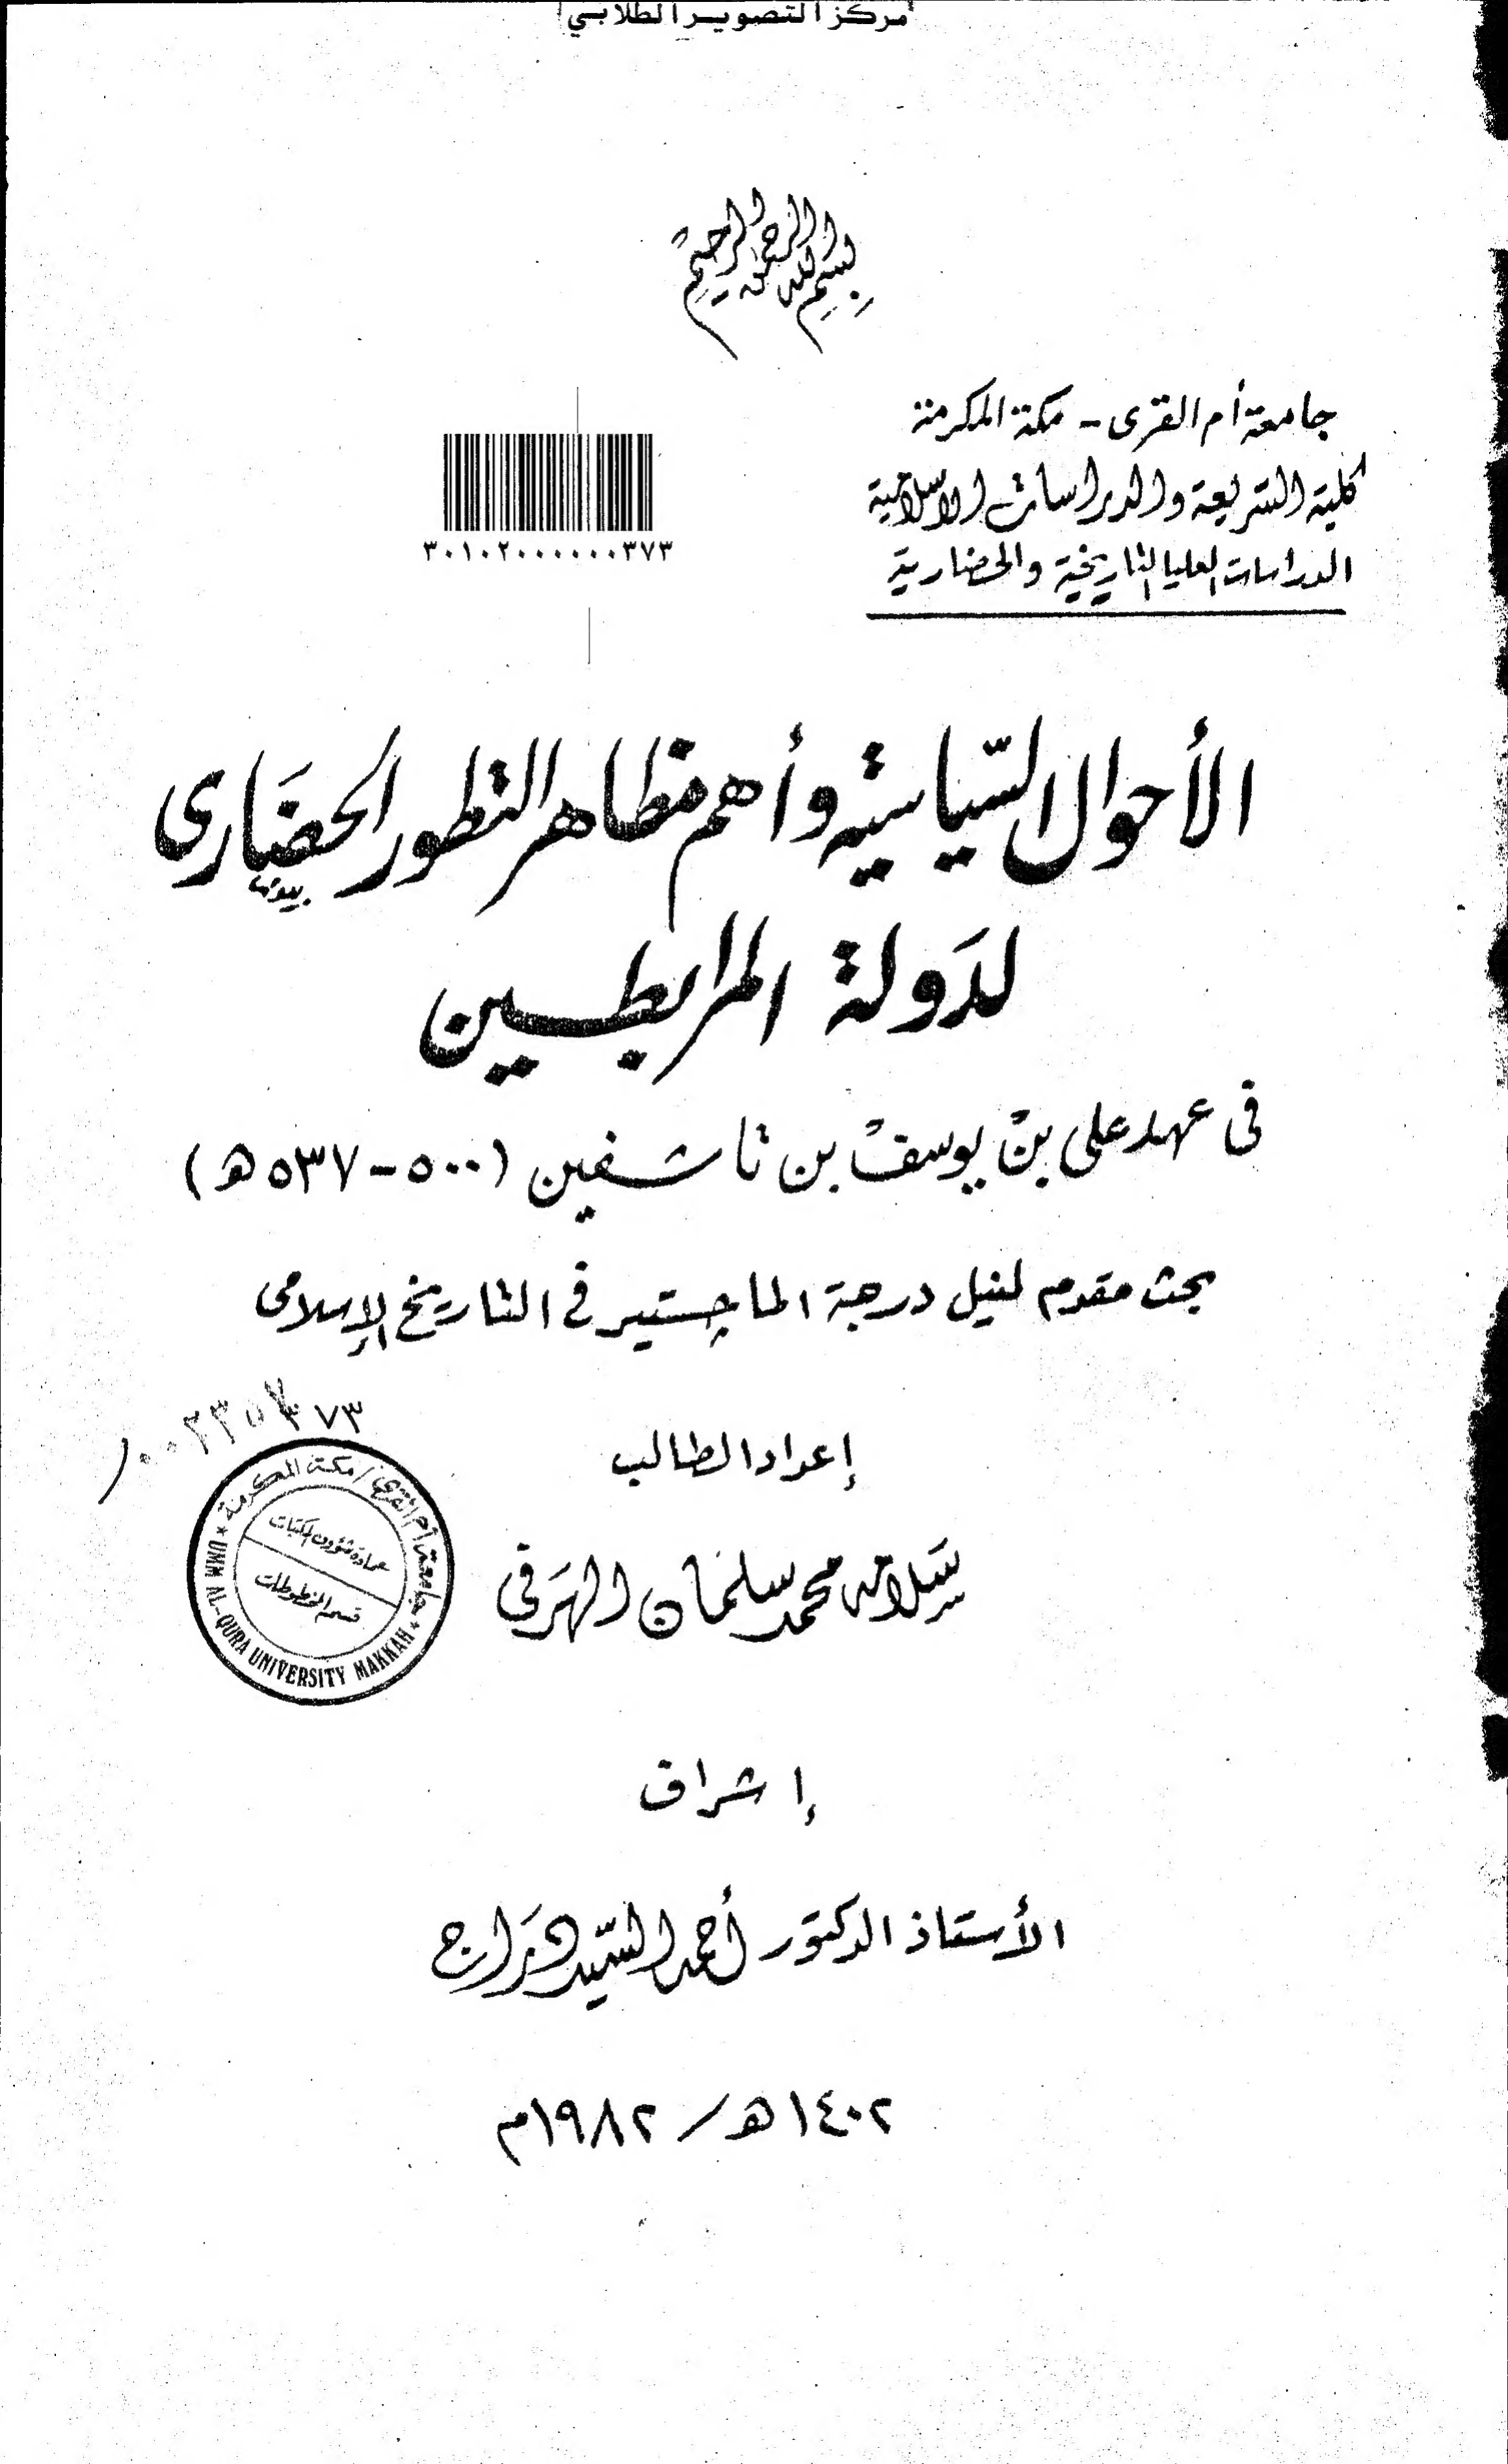 مركز التصوير الطلابي
بسم الله الرحمن الرحيم
جامعة أم القرى - مكة المكرمة
كلية الشريعة والدراسات الإسلامية
الدراسات العليا التاريخية والحضارية
٣٠١٠٢٠٠٠٠٠٠٣٧٣
الأحوال السياسية وأهم مظاهر التطور الحضارى
لدولة المرابطين
فى عهد على بن يوسف بن تاشفين (٥٠٠-٥٣٧ه)
بحث مقدم لنيل درجة الماجستير فى التاريخ الإسلامى
٣٧٣
إعداد الطالب
سلامه محمد سلمان الهرفى
جامعة أم القرى / مكة المكرمة
عمادة شؤون المكتبات
قسم المخطوطات
UMM AL-QURA UNIVERSITY MAKKAH
إشراف
الأستاذ الدكتور أحمد السيد دراج
١٤٠٢ه / ١٩٨٢م